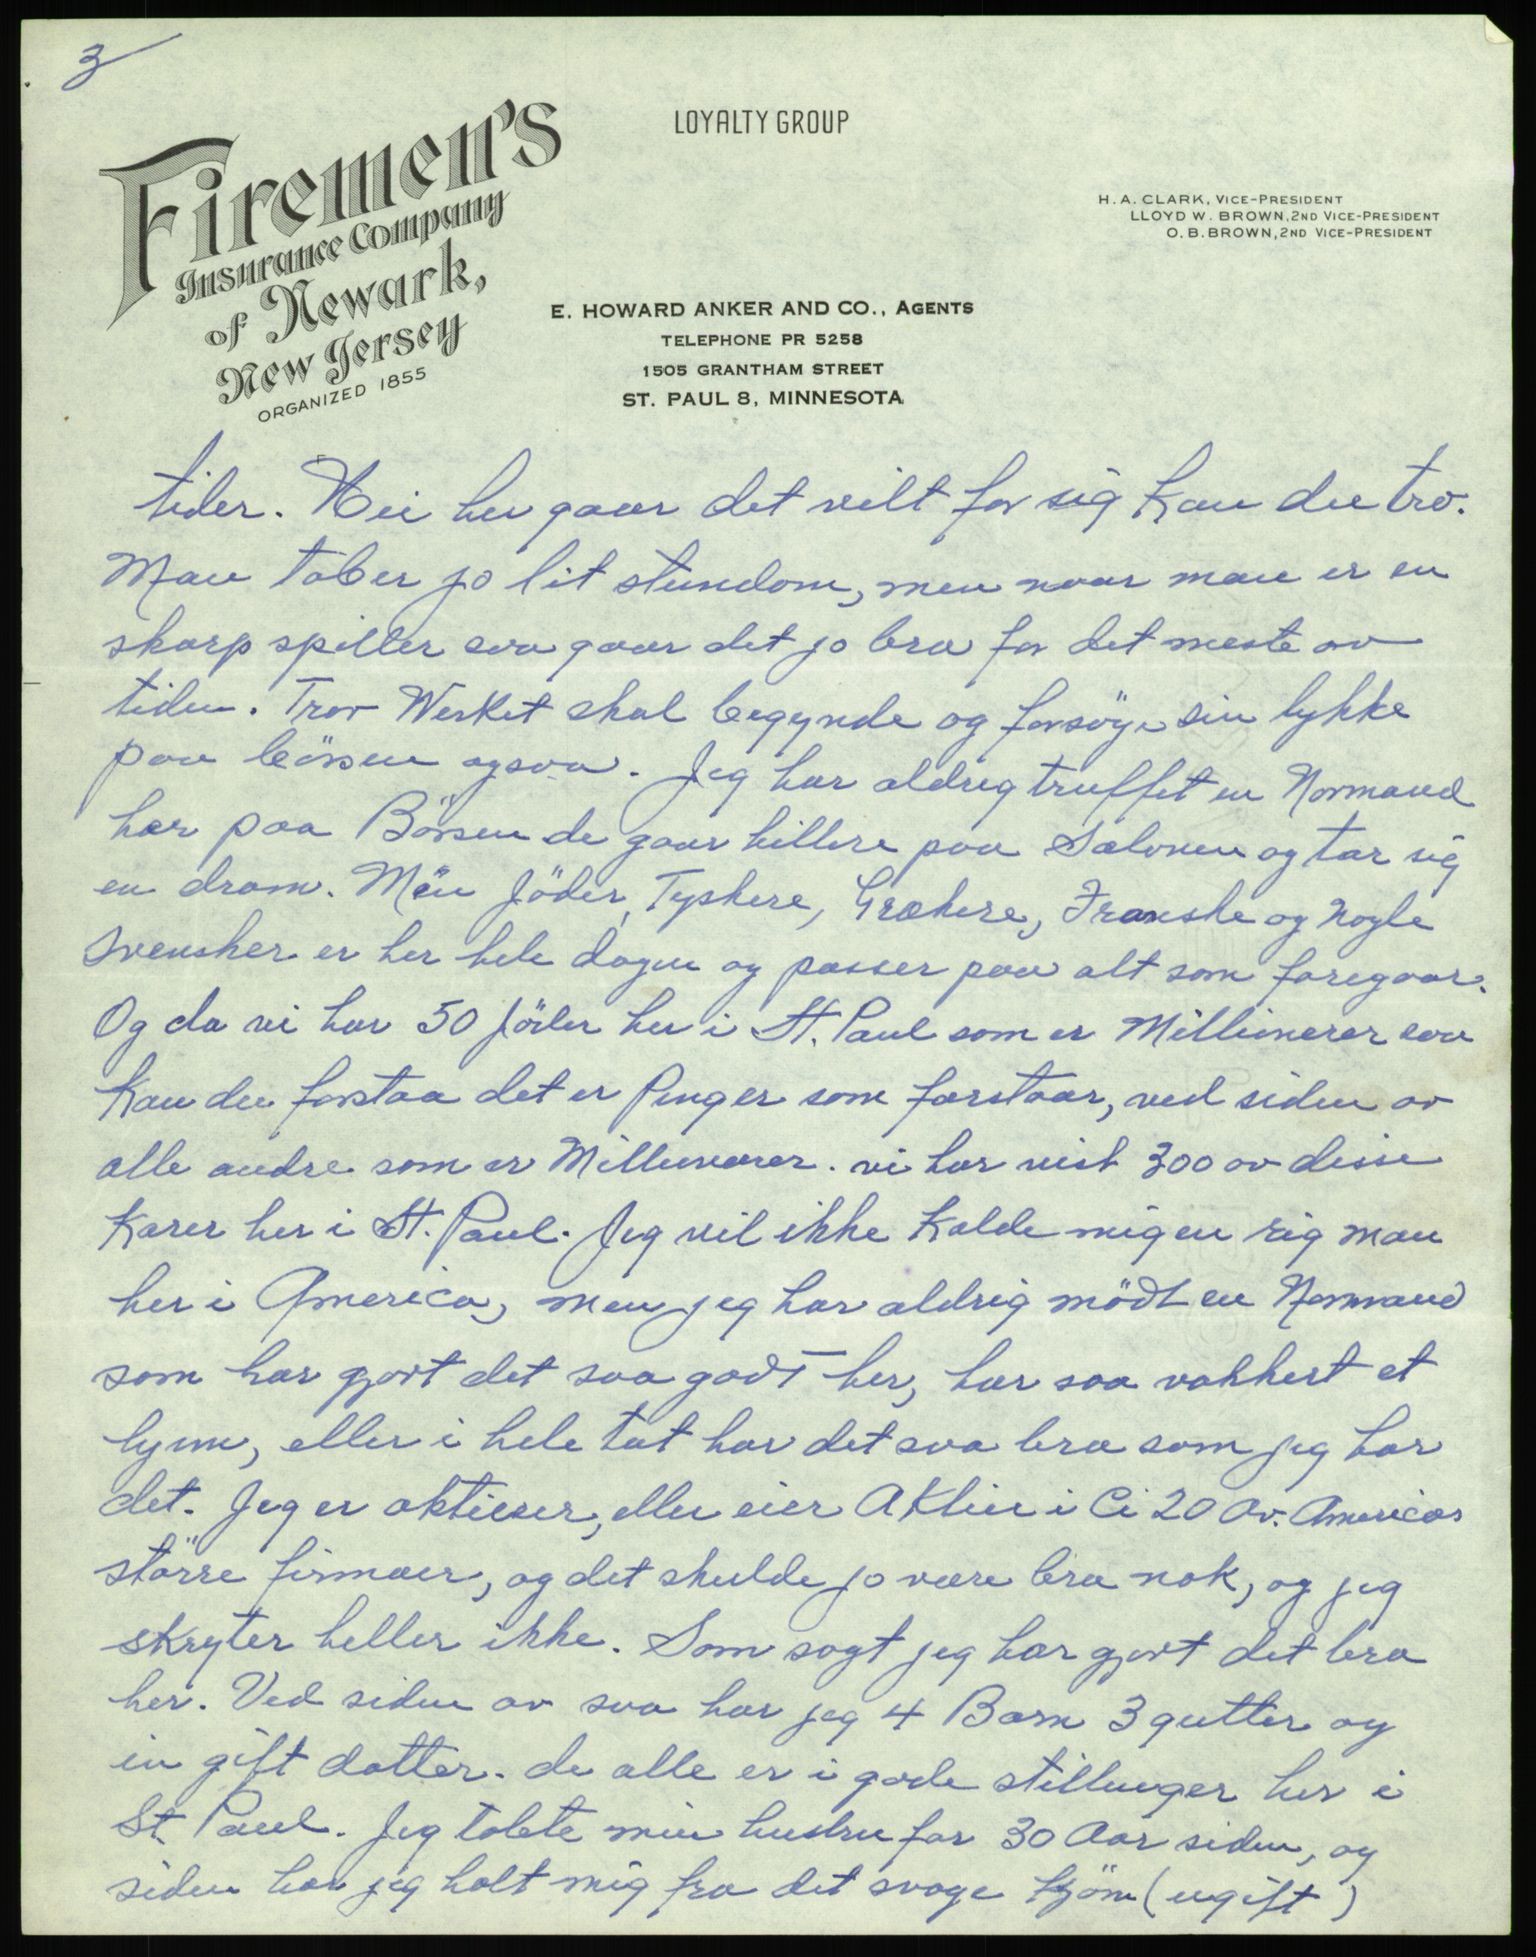 3
Firemen's
Insurance Company
of Newark,
New Jersey
ORGANIZED 1855
LOYALTY GROUP
H. A. CLARK, VICE-PRESIDENT
LLOYD W. BROWN, 2ND VICE-PRESIDENT
O. B. BROWN, 2ND VICE-PRESIDENT
E. HOWARD ANKER AND CO., AGENTS
TELEPHONE PR 5258
1505 GRANTHAM STREET
ST. PAUL 8, MINNESOTA
tider. Nei her gaar det vilt for sig kan du tro.
Man taber jo lit stundom, men naar man er en
skarp spiller saa gaar det jo bra for det meste av
tiden. Tror Verket skal begynde og forsöge sin lykke
paa börsen ogsaa. Jeg har aldrig truffet en Normand
her paa Börsen de gaar hellere paa Salonen og tar sig
en dram. Men Jöder, Tyskere, Grækere, Franske og Nogle
Svensker er her hele dagen og passer paa alt som foregaar.
Og da vi har 50 Jöder her i St. Paul som er Millionerer saa
kan du forstaa det er Penger som forstaar, ved siden av
alle andre som er Millionerer. vi har vist 300 av disse
Karer her i St. Paul. Jeg vil ikke kalde mig en rig man
her i America, men jeg har aldrig mödt en Normand
som har gjort det saa godt her, har saa vakkert et
hjem, eller i hele tat har det saa bra som jeg har
det. Jeg er aktieeier, eller eier Aktier i Ci 20 Av. Americas
större firmaer, og det skulde jo være bra nok, og jeg
skryter heller ikke. Som sagt jeg har gjort det bra
her. Ved siden av saa har jeg 4 Barn 3 gutter og
en gift datter. de alle er i gode stillinger her i
St. Paul. Jeg tabte min hustru for 30 Aar siden, og
siden har jeg holt mig fra det svage kjön (ugift)